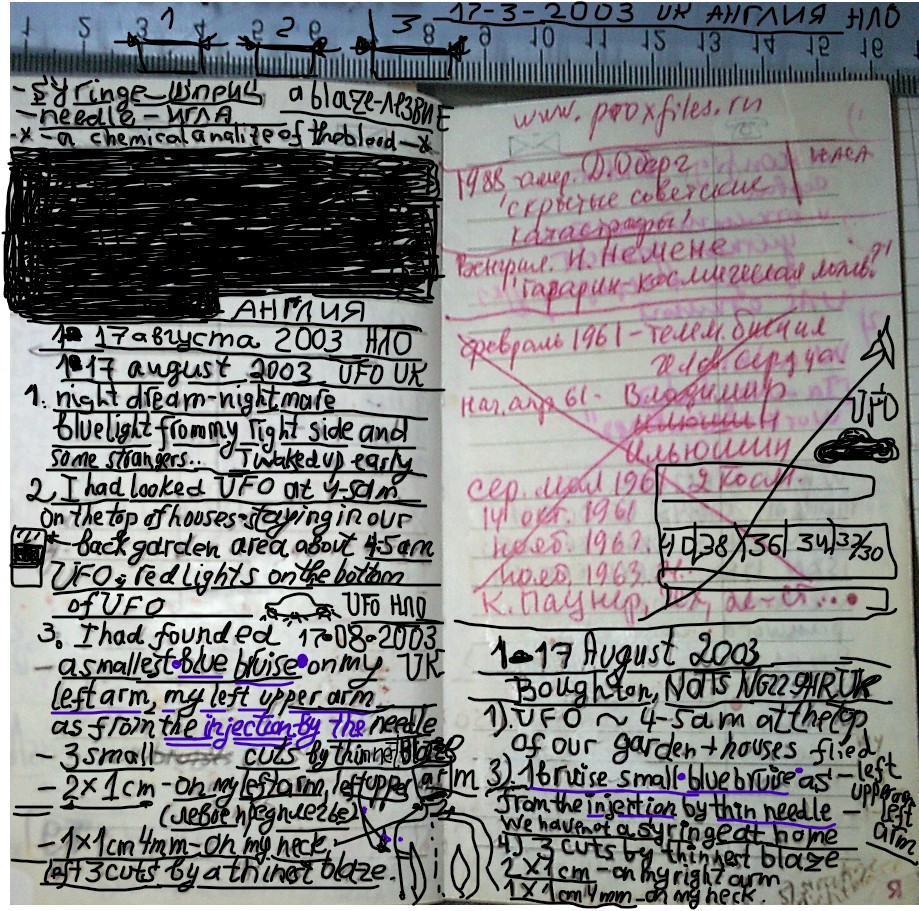 1 2 3 17-3-2003 UK АНГЛИЯ НЛО
1 2 3 4 5 6 8 9 10 11 12 13 14 15 16
-syringe-шприц, a blaze-ЛЕЗВИЕ
-needle-ИГЛА
-x-a chemical analize of the blood-x
АНГЛИЯ
17 августа 2003 НЛО
17 august 2003 UFO UK
1. night dream-nightmare
blue light from my right side and
some strangers.. I waked up early
2. I had looked UFO at 4-5am
on the top of houses-staying in our
back garden area about 4-5am
UFO; red lights on the bottom
of UFO UFO НЛО
3. I had founded 17-08-2003
-a smallest blue bruise on my UK
left arm, my left upper arm
as from the injection by the needle
- 3 small cuts by thinnest blaze
- 2x1cm-on my left arm, left upper arm
(левое предплечье)
- 1x1cm 4mm-on my neck.
left 3 cuts by a thinest blaze.
www.p
1988-амер. Д.Оберг НАСА
"скрытые советские
катастрофы"
Венгрия. И. Немене
"Гагарин-космическая ложь?"
февраль 1961-телем. биения
челов. сердца
нач. апр 61- Владимир
Ильюшин
Ильюшин
сер. мая 196 2 косм.
14 окт. 1961
нояб. 1962.
нояб. 1963.
К. Паунир,
UFO
40 38 36 34 32/30
17 August 2003
Boughton, Notts NG22 9HR UK
1). UFO ~ 4-5am at the top
of our garden + houses flied
3). 1 bruise small blue bruise as - left upper arm
from the injection by thin needle - left arm
we have not a syringe at home
4) 3 cuts by thinnest blaze
2x1cm-on my right arm
1x1cm 4mm-on my neck.
Я